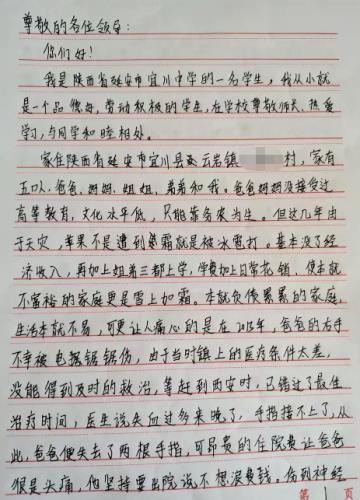 尊敬的各位领导：
你们好！
我是陕西省延安市宜川中学的一名学生，我从小就
是一个品德好，劳动积极的学生，在学校尊敬师长，热爱
学习，与同学和睦相处。
家住陕西省延安市宜川县云岩镇 村，家有
五口人，爸爸、妈妈、姐姐、弟弟和我。爸爸妈妈没接受过
高等教育，文化水平低，只能靠务农为生。但这几年由
于天灾，苹果不是遭到暴霜就是被冰雹打。基本没了经
济收入，再加上姐弟三都上学，学费加上日常花销，使本就
不富裕的家庭更是雪上加霜。本就负债累累的家庭，
生活本就不易，可更让人痛心的是在2015年，爸爸的右手
不幸被电锯锯伤，由于当时镇上的医疗条件太差，
没能得到及时的救治，等赶到西安时，已错过了最佳
治疗时间，医生说失血过多来晚了，手指接不上了，从
此，爸爸便失去了两根手指，可昂贵的住院费让爸爸
很是头痛，他坚持要出院说不想浪费钱。伤到神经
第 1 页